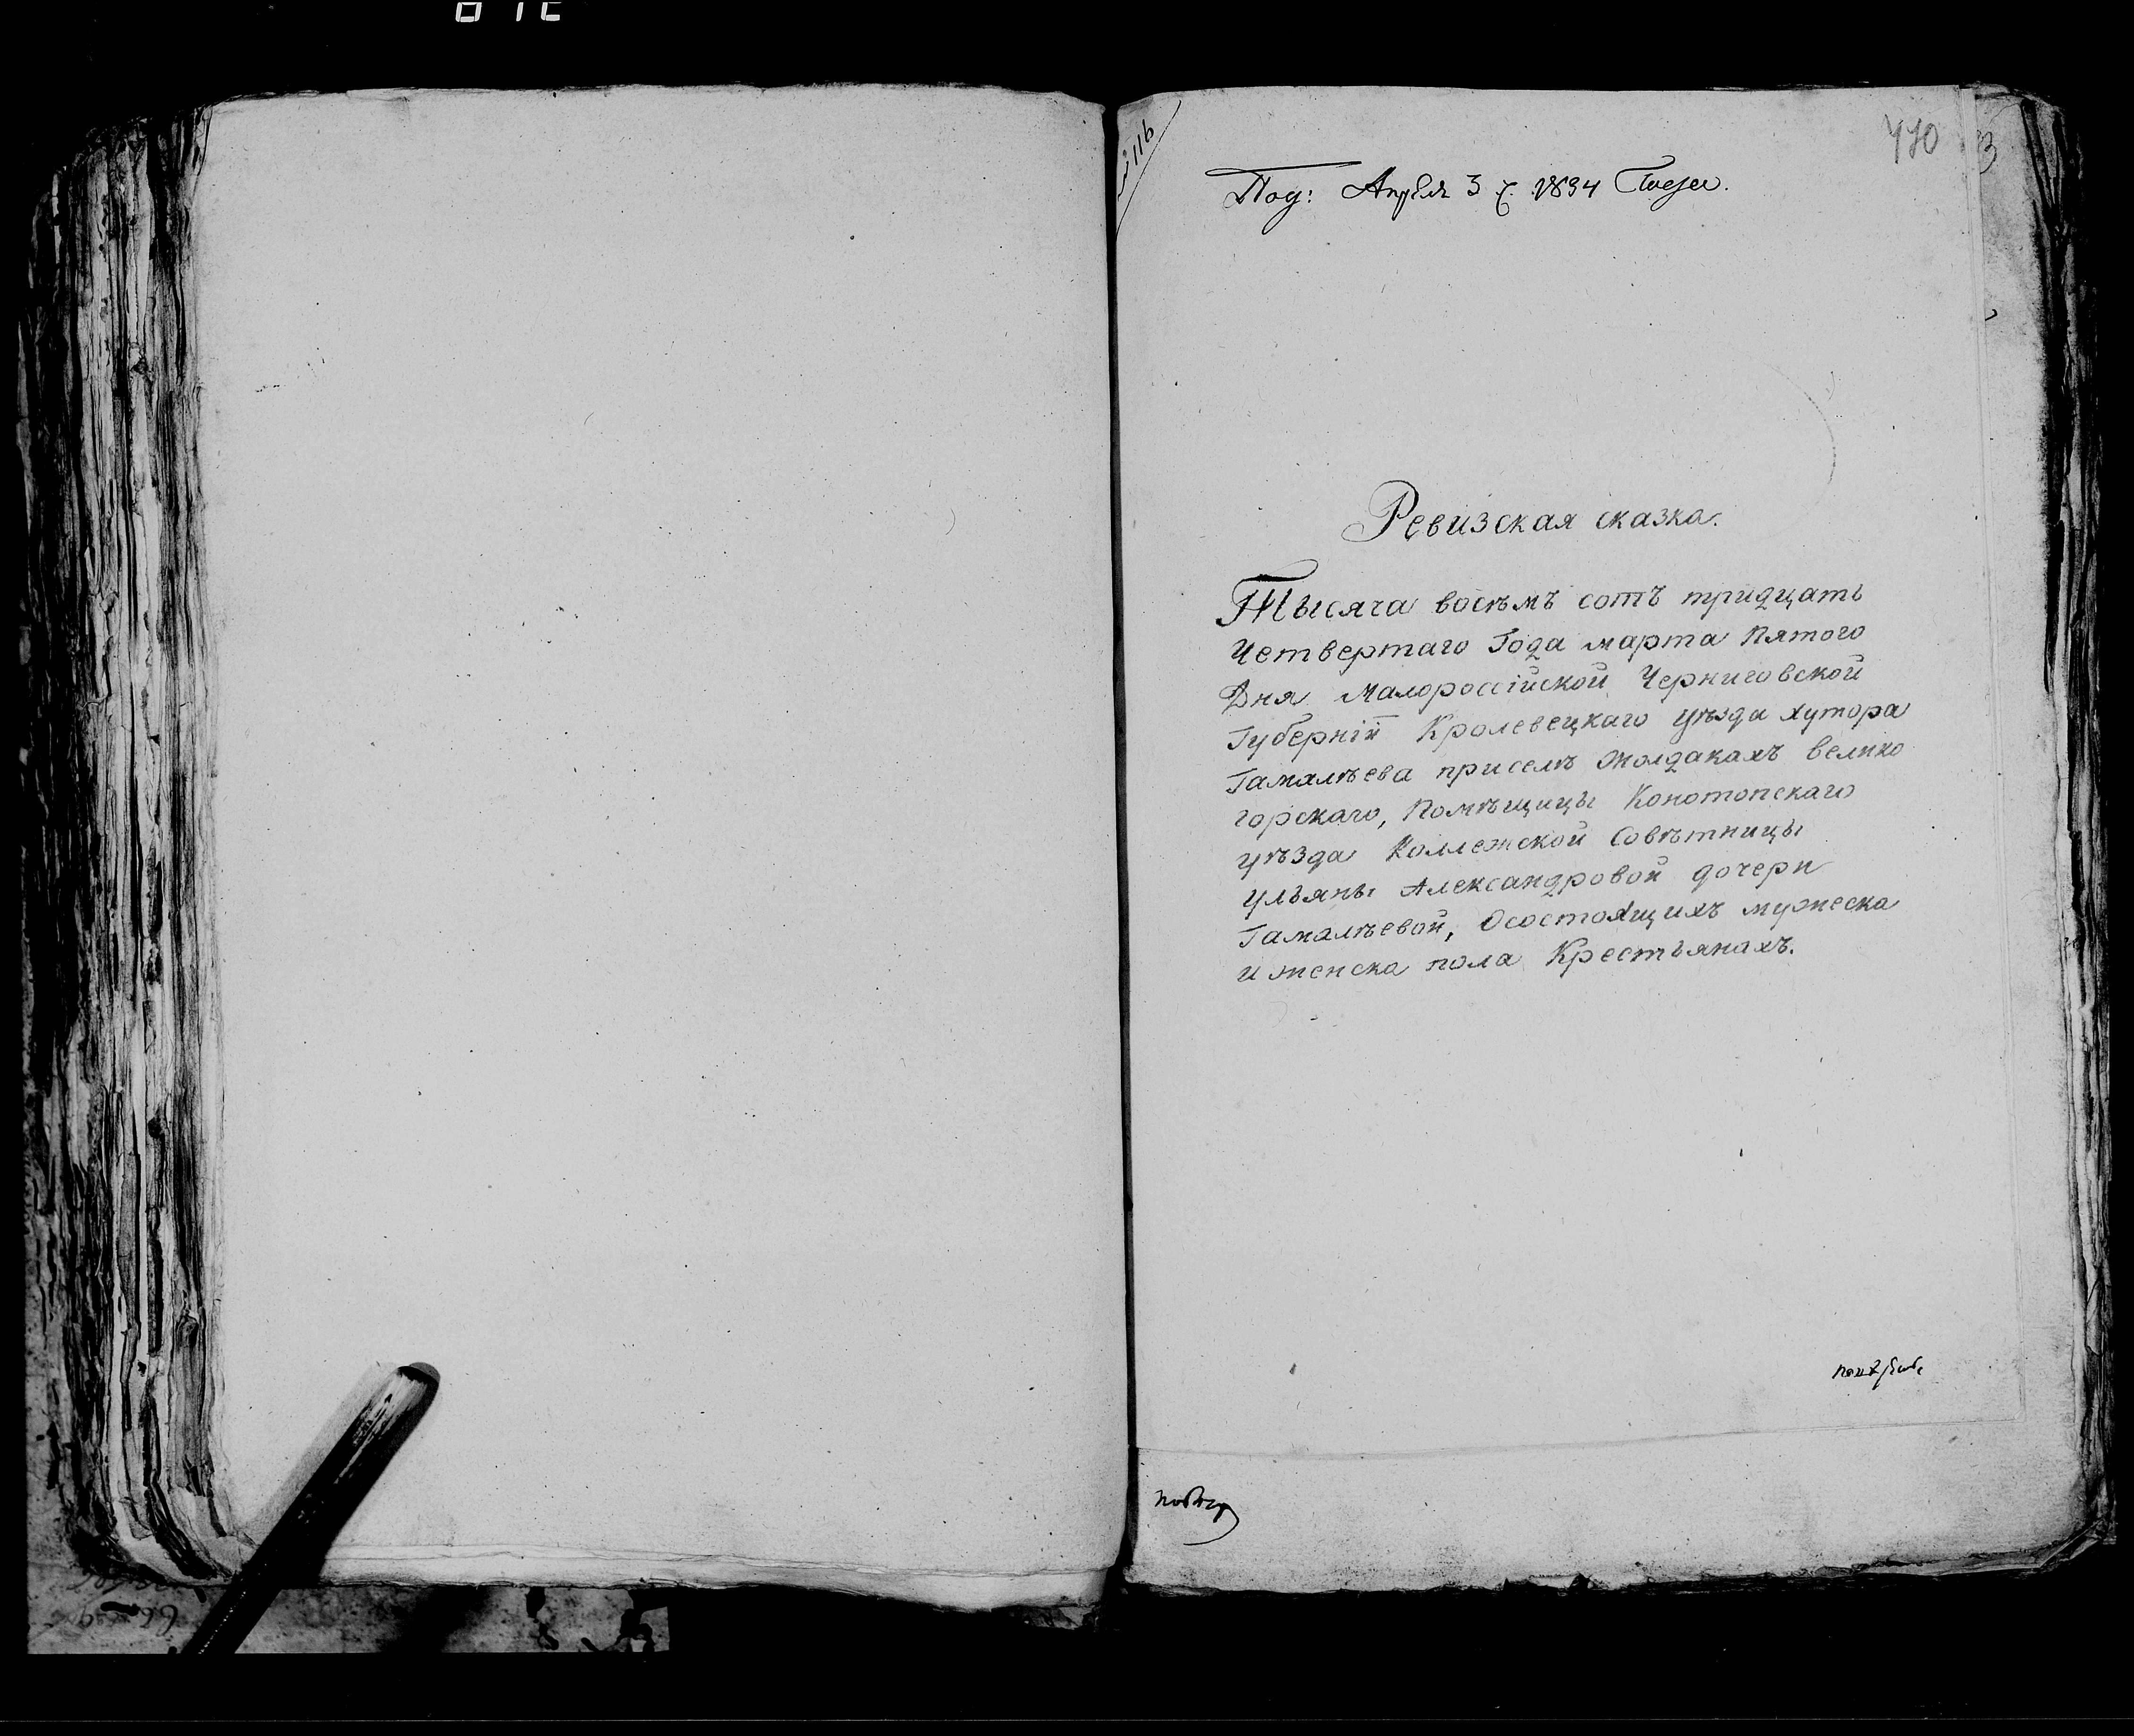 № 116
410
Под: Апреля 3 ч. 1834 Года.
Ревизская сказка.
Тысяча восѣмъ сотъ тридцать
Четвертаго Года марта Пятого
Дня Малороссійской Черниговской
Губерніи Кролевецкаго уѣзда хутора
Гамалѣева приселѣ Жолдакахъ велико
горскаго, Помѣщицы Конотопскаго
уѣзда Коллежской Совѣтницы
Ульяны Александровой дочери
Гамалѣевой, Осостоящихъ мужеска
и женска пола Крестьянахъ.